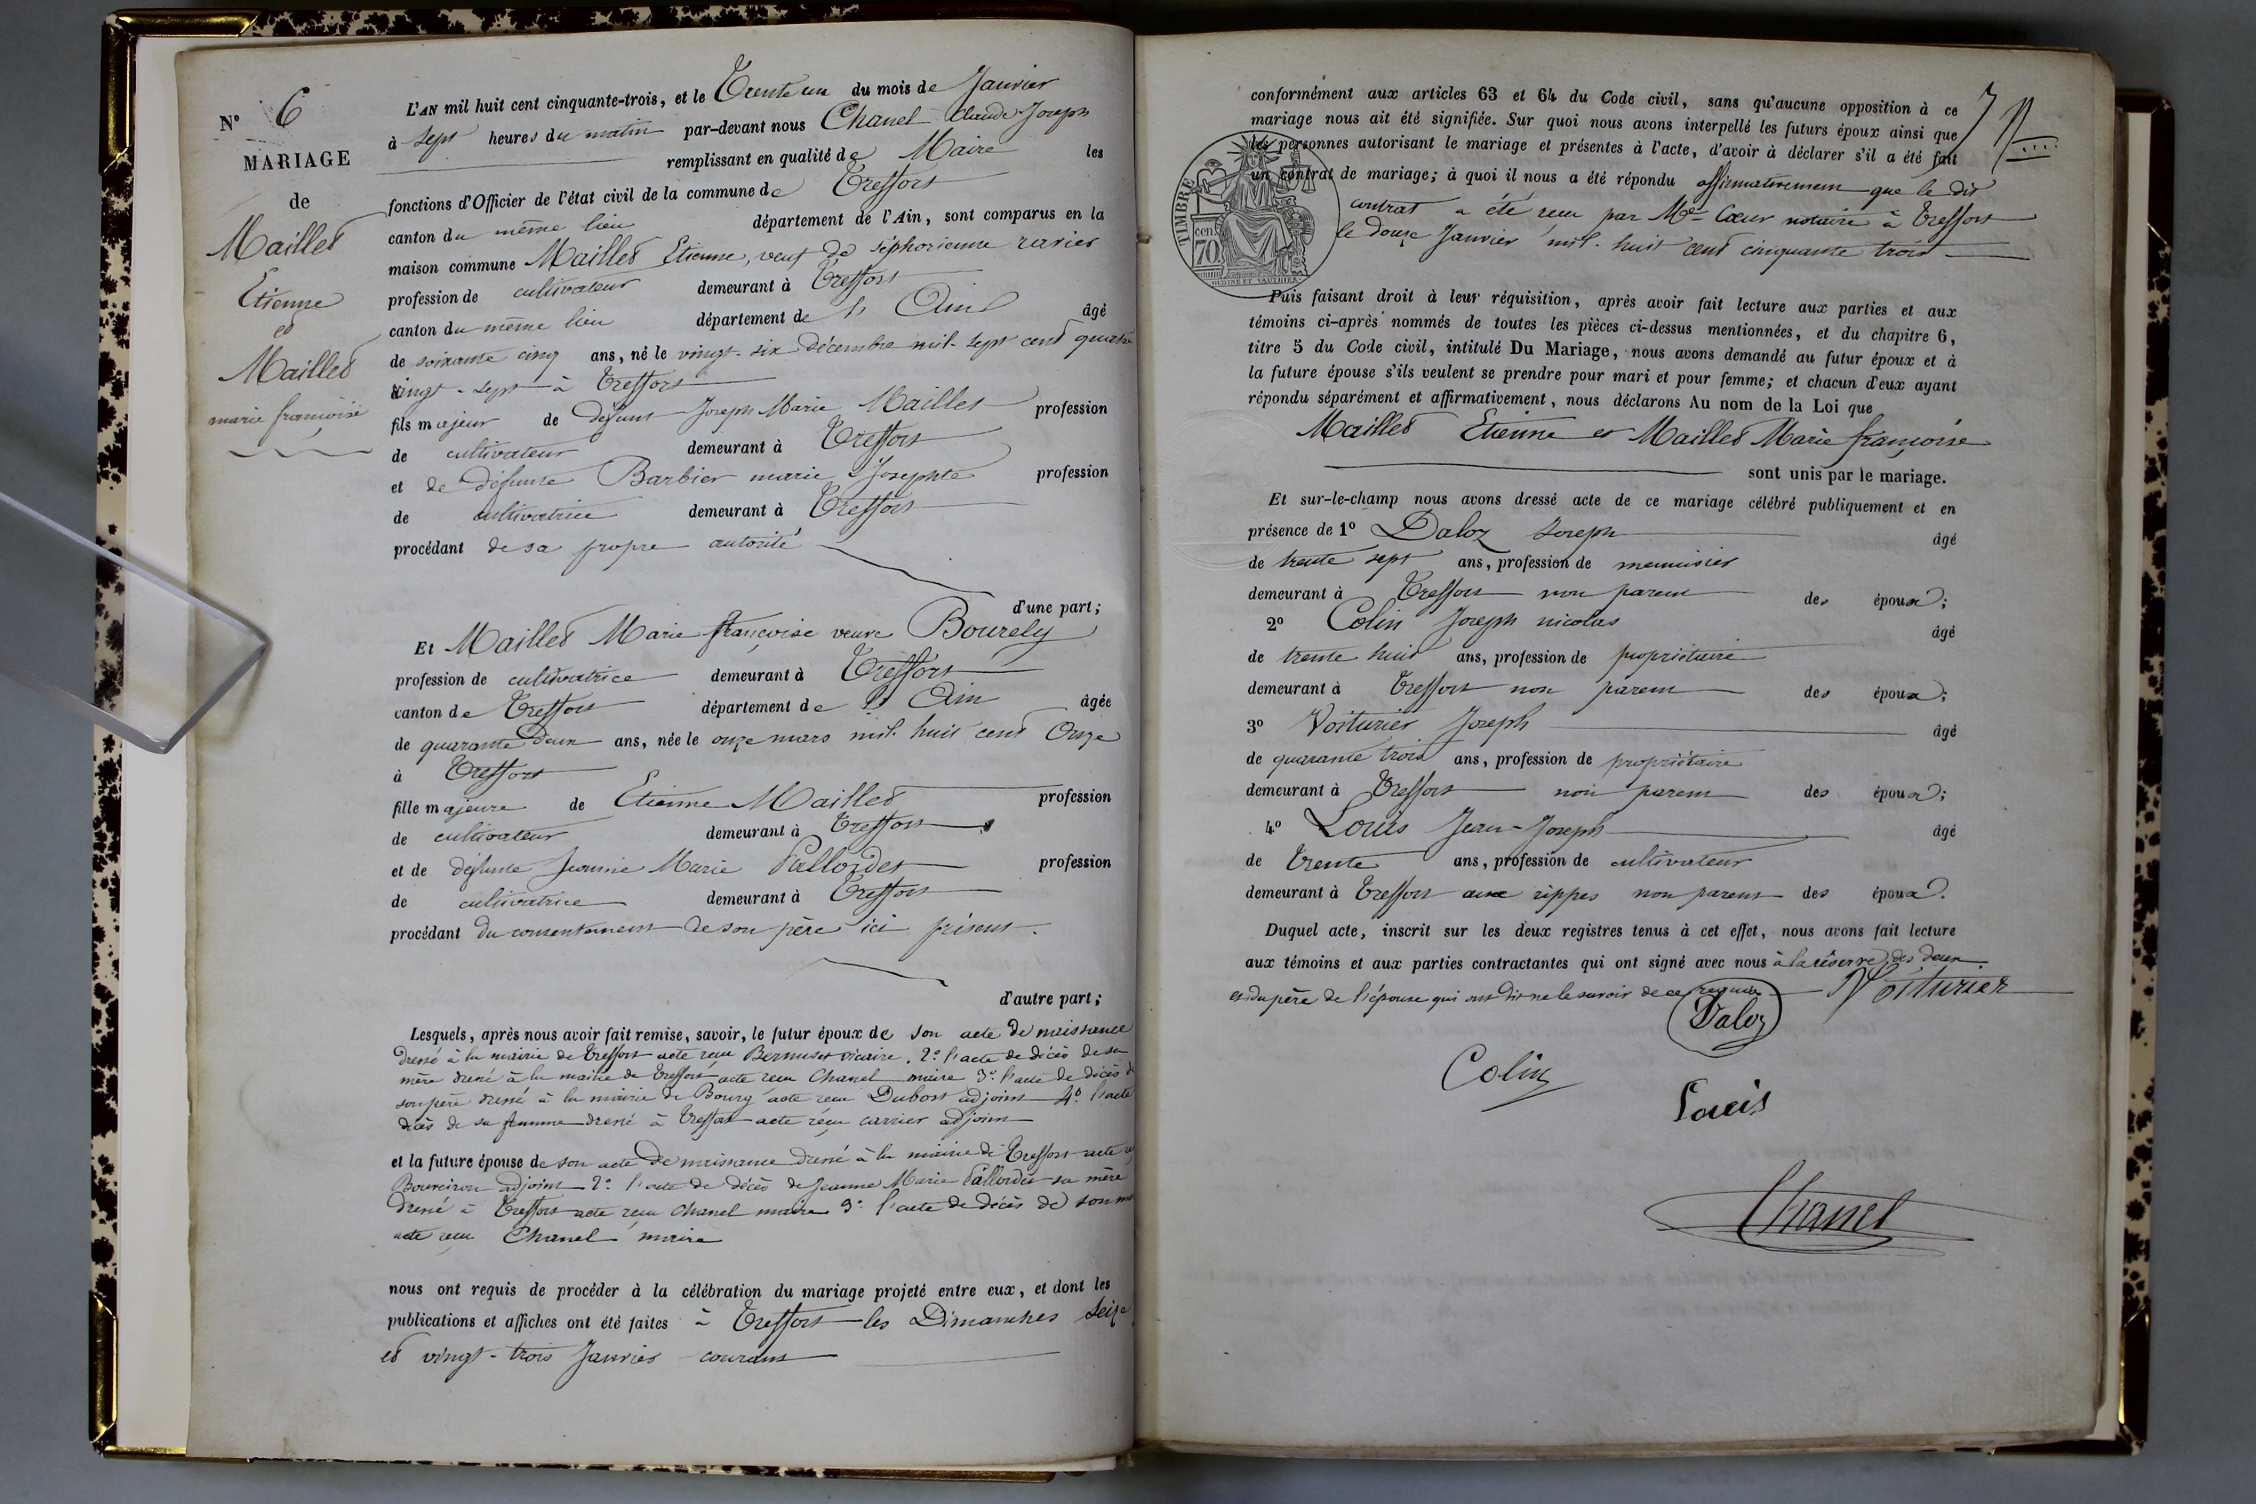 N° 6
MARIAGE
de
Mailled
Etienne
et
Mailled
marie françoise
L'AN mil huit cent cinquante-trois, et le Trente un du mois de Janvier
à sept heures du matin par-devant nous Chanel Claude-Joseph
remplissant en qualité de Maire les
fonctions d'Officier de l'état civil de la commune de Treffort
canton du même lieu département de l'Ain, sont comparus en la
maison commune Mailled Etienne, veuf de séphorienne ravier
profession de cultivateur demeurant à Treffort
canton du même lieu département de l' Ain âgé
de soixante cinq ans, né le vingt-six décembre mil-sept cent quatre
vingt-sept à Treffort
fils majeur de défunt Joseph Marie Mailled profession
de cultivateur demeurant à Treffort
et de défunte Barbier marie Josephte profession
de cultivatrice demeurant à Treffort
procédant de sa propre autorité
d'une part;
Et Mailled Marie françoise veuve Bourely
profession de cultivatrice demeurant à Treffort
canton de Treffort département de l' Ain âgée
de quarante deux ans, née le onze mars mil huit cent Onze
à Treffort
fille majeure de Etienne Mailled profession
de cultivateur demeurant à Treffort
et de défunte Jeanne Marie Pallordet profession
de cultivatrice demeurant à Treffort
procédant du consentement de son père ici présent.
d'autre part;
Lesquels, après nous avoir fait remise, savoir, le futur époux de son acte de naissance
dressé à la mairie de Treffort acte reçu vicaire. 2° l'acte de décès de sa
mère dressé à la mairie de Treffort acte reçu Chanel maire 3° l'acte de décès de
son père dressé à la mairie de Bourg acte reçu Dubost adjoint 4° l'acte
décès de sa femme dressé à Treffort acte reçu carrier adjoint
et la future épouse de son acte de naissance dressé à la mairie de Treffort acte
adjoint 2° l'acte de décès de Jeanne Marie Pallordet sa mère
dressé à Treffort acte reçu Chanel maire 3° l'acte de décès de son
acte reçu Chanel maire
nous ont requis de procéder à la célébration du mariage projeté entre eux, et dont les
publications et affiches ont été faites à Treffort les Dimanches seize
et vingt-trois Janvier courant
conformément aux articles 63 et 64 du Code civil, sans qu'aucune opposition à ce
mariage nous ait été signifiée. Sur quoi nous avons interpellé les futurs époux ainsi que
les personnes autorisant le mariage et présentes à l'acte, d'avoir à déclarer s'il a été fait
un contrat de mariage; à quoi il nous a été répondu affirmativement que le dit
contrat a été reçu par Me Cœur notaire à Treffort
le douze Janvier mil-huit cent cinquante trois
TIMBRE
70 cent
Puis faisant droit à leur réquisition, après avoir fait lecture aux parties et aux
témoins ci-après nommés de toutes les pièces ci-dessus mentionnées, et du chapitre 6,
titre 5 du Code civil, intitulé Du Mariage, nous avons demandé au futur époux et à
la future épouse s'ils veulent se prendre pour mari et pour femme; et chacun d'eux ayant
répondu séparément et affirmativement, nous déclarons Au nom de la Loi que
Mailled Etienne et Mailled Marie françoise
sont unis par le mariage.
Et sur-le-champ nous avons dressé acte de ce mariage célébré publiquement et en
présence de 1° Daloz Joseph âgé
de trente sept ans, profession de menuisier
demeurant à Treffort non parent des époux;
2° Colin Joseph nicolas âgé
de trente huit ans, profession de propriétaire
demeurant à Treffort non parent des époux;
3° Voiturier Joseph âgé
de quarante trois ans, profession de propriétaire
demeurant à Treffort non parent des époux;
4° Louis Jean-Joseph âgé
de Trente ans, profession de cultivateur
demeurant à Treffort aux rippes non parent des époux.
Duquel acte, inscrit sur les deux registres tenus à cet effet, nous avons fait lecture
aux témoins et aux parties contractantes qui ont signé avec nous à la réserve des deux
et du père de l'épouse qui ont dit ne le savoir de ce requis
Voiturier
Daloz
Colin
Louis
Chanel